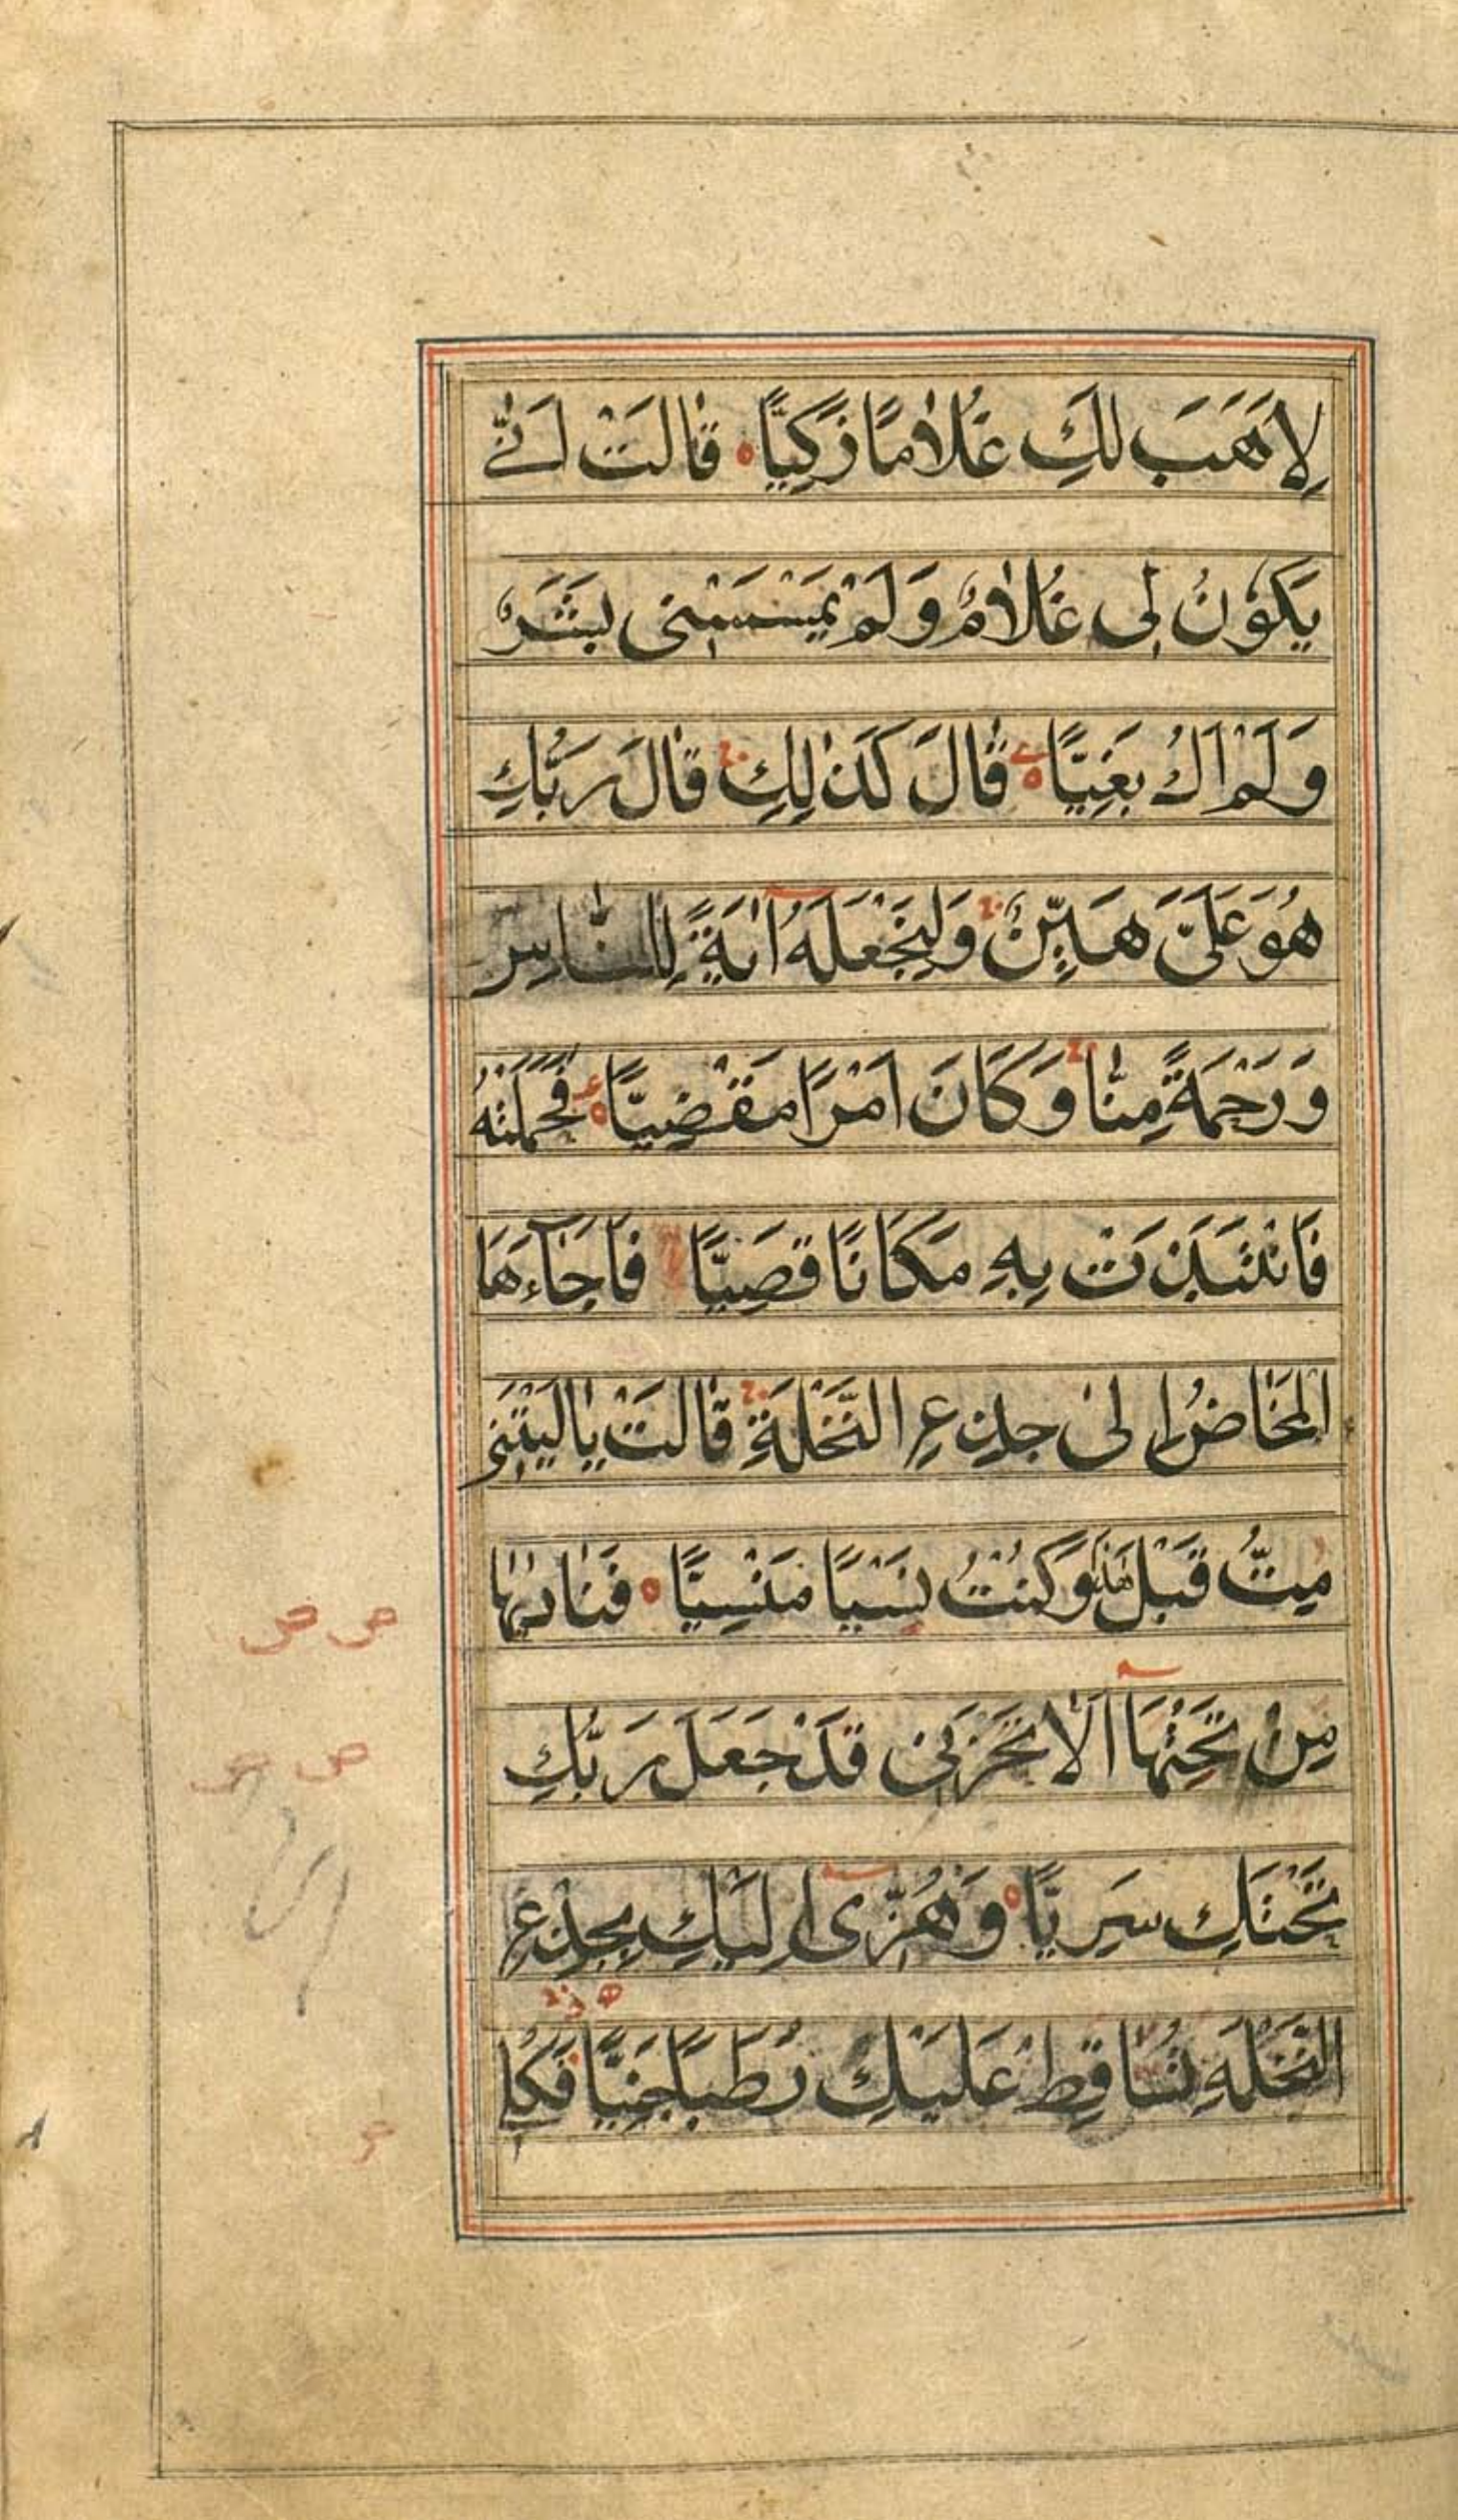 لِاَهَبَ لَكِ غُلٰامًا زَكِيًّا قٰالَتْ اَنّٰى
يَكُوْنُ لِى غُلٰامٌ وَلَمْ يَمْسَسْنِى بَشَرٌ
وَلَمْ اَكُ بَغِيًّا قٰالَ كَذٰلِكِ قٰالَ رَبُّكِ
هُوَ عَلَىَّ هَيِّنٌ وَلِنَجْعَلَهُ اٰيَةً لِلنّٰاسِ
وَرَحْمَةً مِنّٰا وَكَانَ اَمْرًا مَقْضِيًّا فَحَمَلَتْهُ
فَانْتَبَذَتْ بِهِ مَكَانًا قَصِيًّا فَاَجَاءَهَا
الْمَخَاضُ اِلىٰ جِذْعِ النَّخْلَةِ قٰالَتْ يٰالَيْتَنِى
مِتُّ قَبْلَ هٰذَا وَكُنْتُ نَسْيًا مَنْسِيًّا فَنٰادٰىهٰا
مِنْ تَحْتِهَا اَلّٰا تَحْزَنِى قَدْ جَعَلَ رَبُّكِ
تَحْتَكِ سَرِيًّا وَهُزِّى اِلَيْكِ بِجِذْعِ
النَّخْلَةِ تُسَاقِطْ عَلَيْكِ رُطَبًا جَنِيًّا فَكُلِى
ص ص
ص